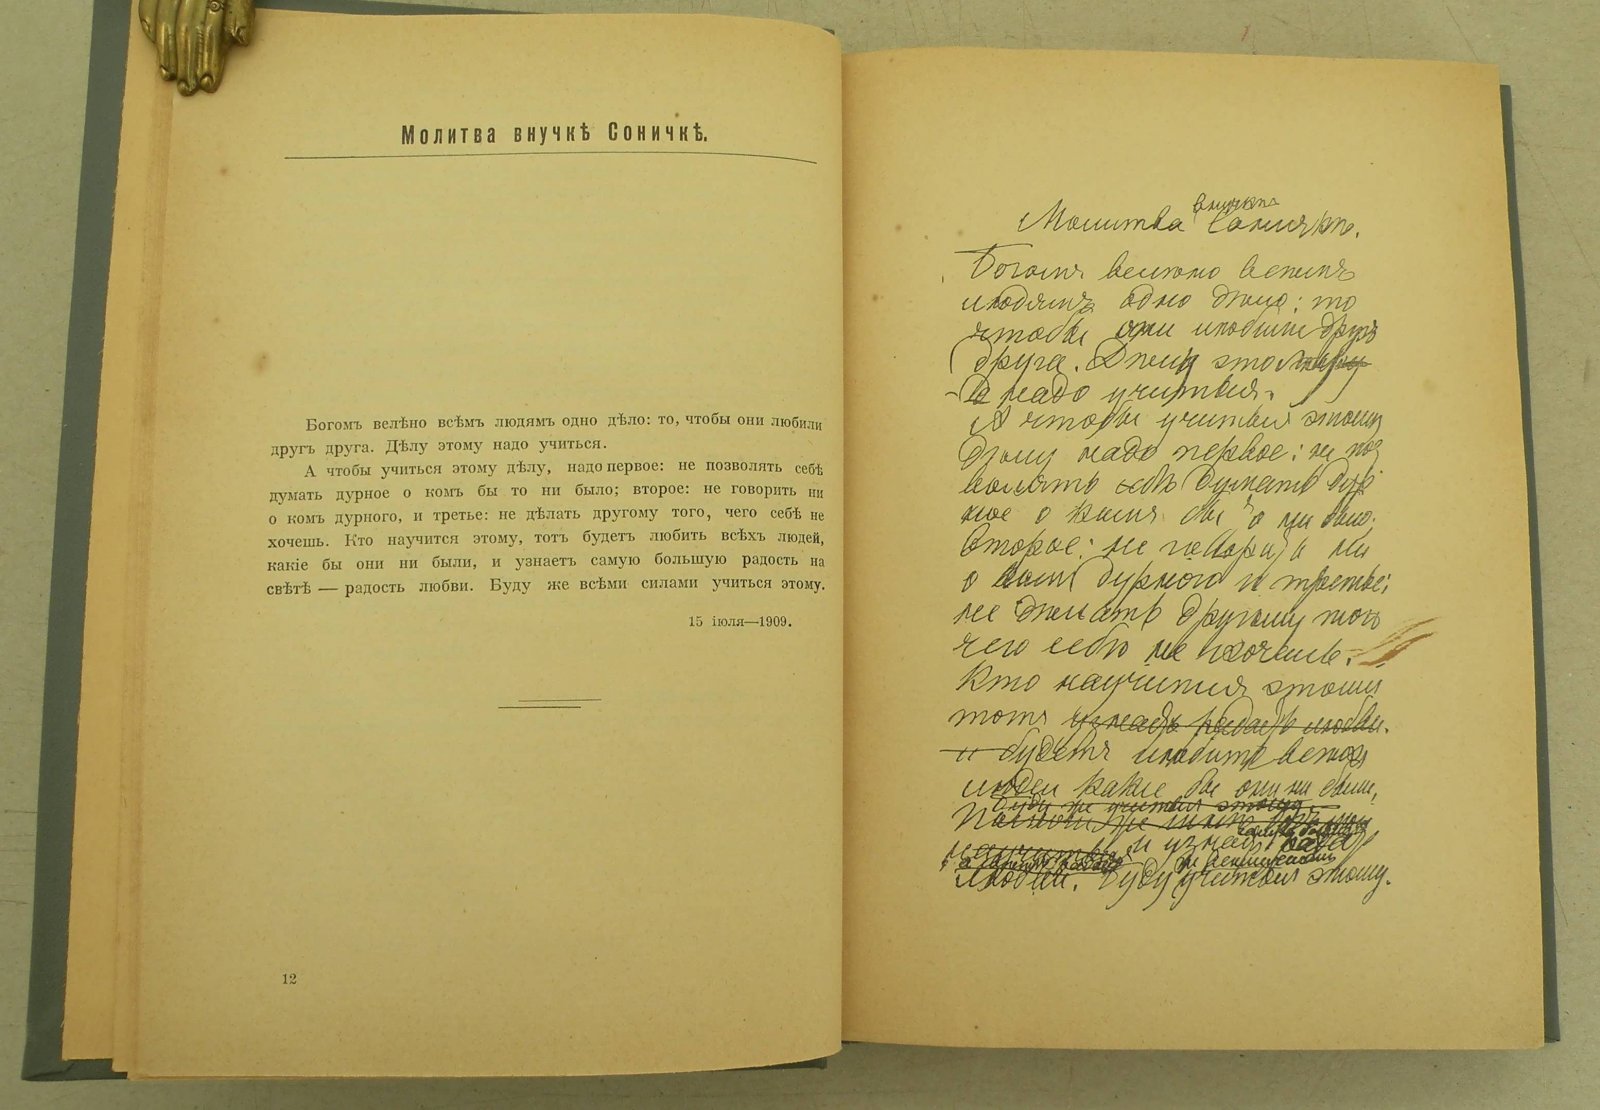 Молитва внучкѣ Соничкѣ.
Богомъ велѣно всѣмъ людямъ одно дѣло: то, чтобы они любили
другъ друга. Дѣлу этому надо учиться.
А чтобы учиться этому дѣлу, надо первое: не позволять себѣ
думать дурное о комъ бы то ни было; второе: не говорить ни
о комъ дурного, и третье: не дѣлать другому того, чего себѣ не
хочешь. Кто научится этому, тотъ будетъ любить всѣхъ людей,
какіе бы они ни были, и узнаетъ самую большую радость на
свѣтѣ — радость любви. Буду же всѣми силами учиться этому.
15 іюля—1909.
12
внучкѣ
Молитва Соничкѣ.
Богомъ велѣно всѣмъ
людямъ одно дѣло: то
чтобы они любили другъ
друга. Дѣлу этому
надо учиться.
А чтобы учиться этому
дѣлу надо первое: не поз
волять себѣ думать дур
ное о комъ бы то ни было;
второе: не говорить ни
о комъ дурного и третье:
не дѣлать другому того
чего себѣ не хочешь.
Кто научится этому
тотъ узнаетъ радость любви.
и будетъ любить всѣхъ
людей какіе бы они ни были,
буду же учиться этому
и узнаетъ
любви. Буду учиться этому.